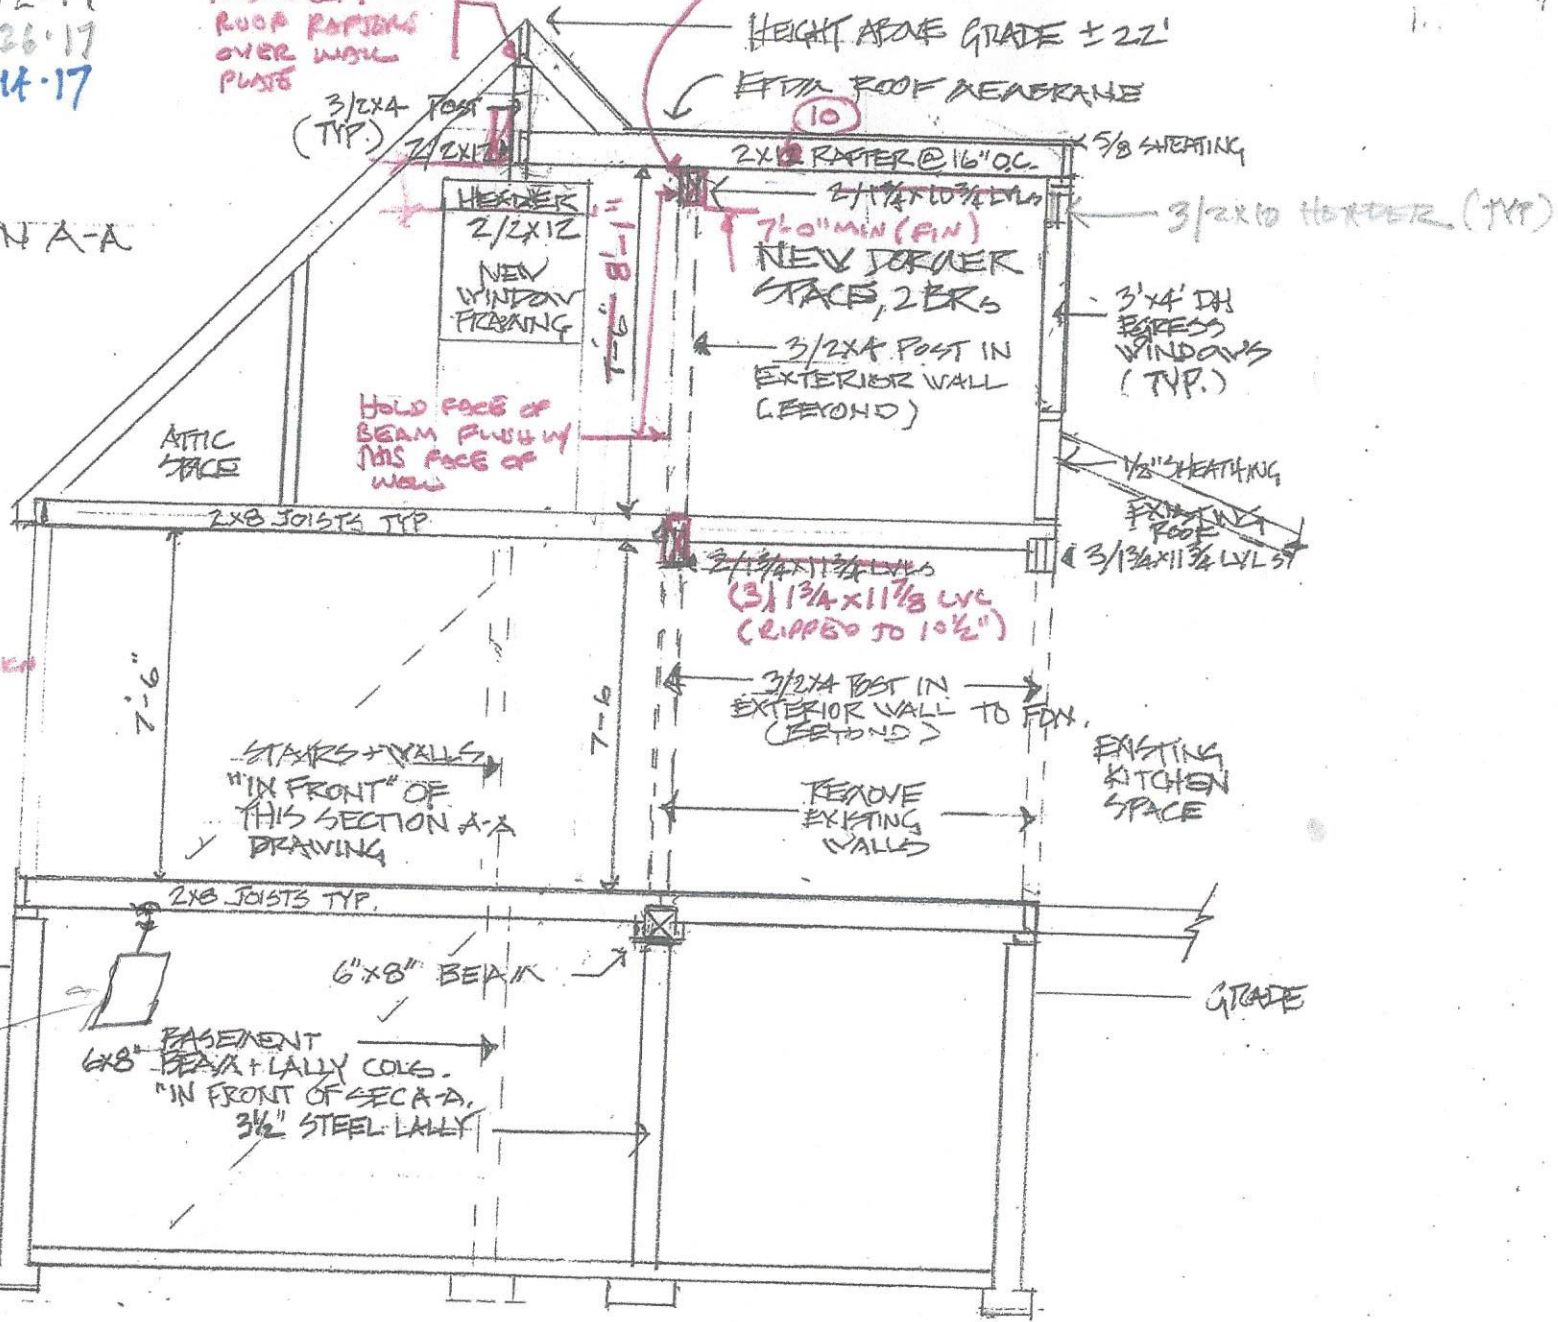 26·17
14·17
ROOF RAFTERS
OVER WALL
PLATE
HEIGHT ABOVE GRADE ± 22'
EPDM ROOF MEMBRANE
3/2X4 POST
(TYP.)
10
2/2X12
2X12 RAFTER @ 16" O.C.
5/8 SHEATING
N A-A
HEADER
2/2X12
2/1¾X10¾ LVLS
3/2X10 HEADER (TYP)
7'-0" MIN (FIN)
NEW
WINDOW
FRAMING
7'-6"
8'-1"
NEW DORMER
SPACE, 2 BRs
3'X4' DH
EGRESS
WINDOWS
(TYP.)
3/2X4 POST IN
EXTERIOR WALL
(BEYOND)
HOLD FACE OF
BEAM FLUSH W/
THIS FACE OF
WALL
ATTIC
SPACE
1/2" SHEATHING
EXISTING
ROOF
2X8 JOISTS TYP.
2/1¾X11¾ LVLS
3/1¾X11¾ LVLS
(3) 1¾ X 11⅞ LVL
(RIPPED TO 10½")
7'-6"
7-6
3/2X4 POST IN
EXTERIOR WALL TO FDN.
(BEYOND)
STAIRS + WALLS
"IN FRONT" OF
THIS SECTION A-A
DRAWING
REMOVE
EXISTING
WALLS
EXISTING
KITCHEN
SPACE
2X8 JOISTS TYP.
6"X8" BEAM
GRADE
BASEMENT
6X8" BEAM + LALLY COLS.
"IN FRONT OF SEC A-A.
3½" STEEL LALLY